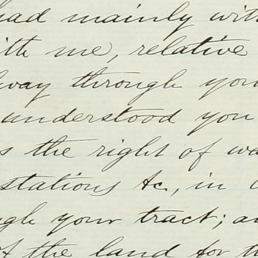 had mainly with
with me, relative
way through you
understood you
s the right of wa
stations &c., in
gh your tract; an
of the land for th